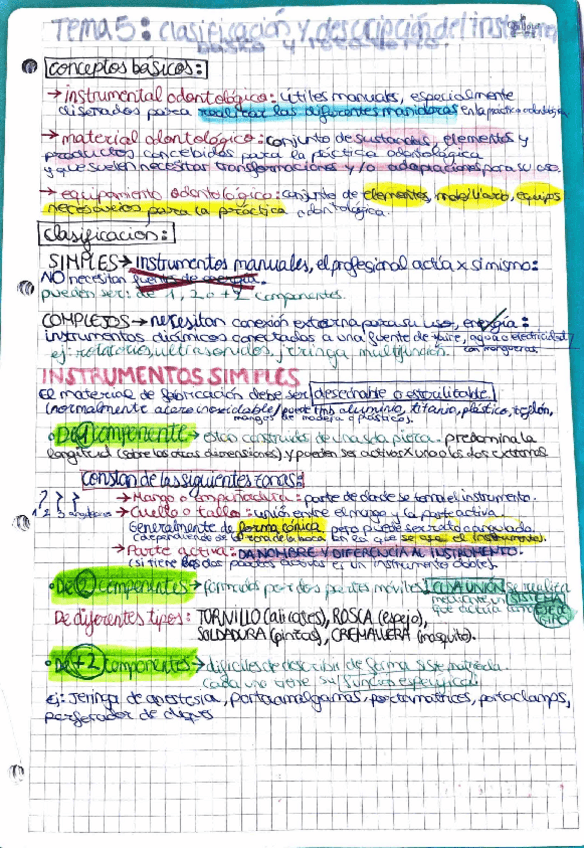 Tema 5: clasificación y descripción del
conceptos básicos:
→ instrumental odontológico: útiles manuales, especialmente
diseñados para realizar las diferentes maniobras en la práctica odontológica
→ material odontológico: conjunto de sustancias, elementos y
productos concebidos para la práctica odontológica
y que suelen necesitar transformaciones y/o adaptaciones para su uso.
→ equipamiento odontológico: conjunto de elementos, mobiliario, equipos
necesarios para la práctica odontológica.
clasificación:
SIMPLES → instrumentos manuales, el profesional actúa x si mismo:
NO necesitan fuentes de energía.
pueden ser: de 1, 2 o +2 componentes.
COMPLEJOS → necesitan conexión externa para su uso, energía:
instrumentos dinámicos conectados a una fuente de aire, agua o electricidad
ej: rotatorios, ultrasonidos, jeringa multifunción. con mangueras.
INSTRUMENTOS SIMPLES
El material de fabricación debe ser desechable o esterilizable.
(normalmente acero inoxidable/ aluminio, titanio, plástico, teflón,
mangos de madera o plásticos.
• De 1 componente → están construidos de una sola pieza. predomina la
longitud (sobre las otras dimensiones) y pueden ser activos x uno o los dos extremos
Constan de las siguientes zonas:
→ Mango o empuñadura: parte de donde se toma el instrumento.
1 2 3 → Cuello o tallo: unión entre el mango y la parte activa.
Generalmente de forma cónica pero puede ser recto o angulado.
dependiendo de la zona de la boca en la que se use el instrumento.
→ Parte activa: DA NOMBRE Y DIFERENCIA AL INSTRUMENTO.
(si tiene dos partes activas es un instrumento doble).
• De 2 componentes → formados por dos partes móviles, CUYA UNION se realiza
mediante SISTEMA
que actúa como EJE DE GIRO
De diferentes tipos: TORNILLO (alicates), ROSCA (espejo),
SOLDADURA (pinzas), CREMALLERA (mosquito).
• De +2 componentes → difíciles de describir de forma sistemática.
cada uno tiene su función específica.
Ej: Jeringa de anestesia, portaamalgamas, portamatrices, portaclamps,
perforador de diques